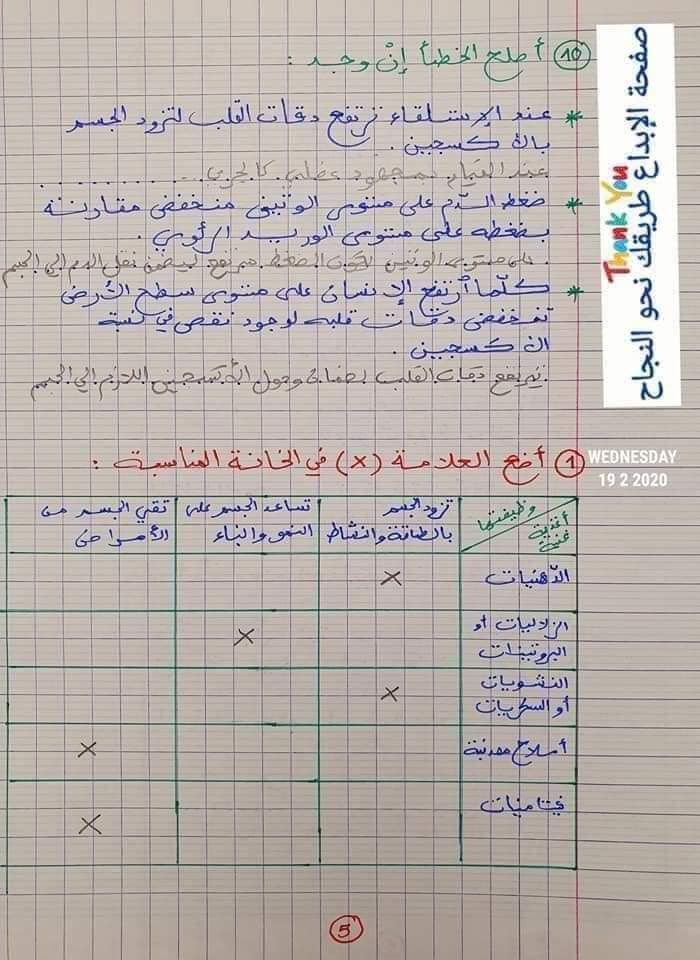 10 أصلح الخطأ إنْ وجد :
* عند الإستلقاء ترتفع دقات القلب لتزود الجسم
بالأكسجين .
عند القيام بمجهود عضلي كالجري
* ضغط الدّم على مستوى الوتين منخفض مقارنة
بضغطه على مستوى الوريد الرئوي .
على مستوى الوتين يكون الضغط مرتفع ليضمن نقل الدم إلى الجسم
* كلّما ارتفع الإنسان على مستوى سطح الأرض
تنخفض دقات قلبه لوجود نقص في نسبة
الأكسجين .
ترتفع دقات القلب لضمان وصول الأكسجين اللازم إلى الجسم
1 أضع العلامة (x) في الخانة المناسبة :
وظيفتها
أغذية غنية
تزود الجسم بالطاقة والنشاط
تساعد الجسم على النمو والبناء
تقي الجسم من الأمراض
الدّهنيات X
الزلاليات أو البروتينات X
النشويات أو السكريات X
أملاح معدنية X
فيتامينات X
5
Thank You
صفحة الإبداع طريقك نحو النجاح
WEDNESDAY
19 2 2020